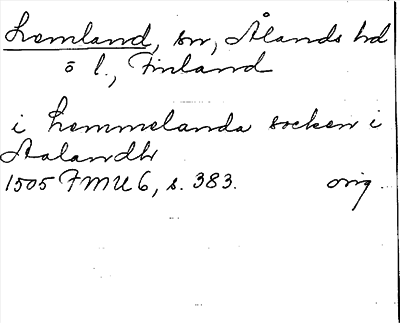 Lemland, sn, Ålands hd
ö l., Finland
i Lemmelanda socken i
Aalandh
1505 FMU 6, s. 383. orig.